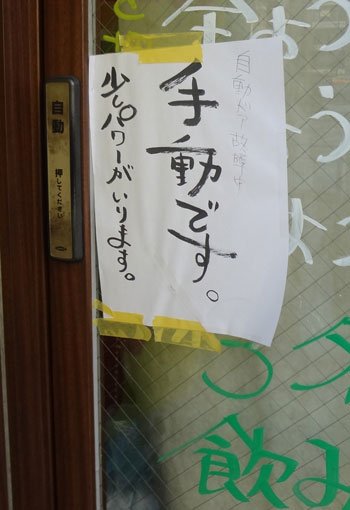 自動ドア故障中
手動です。
少しパワーがいります。
自動
押してください
飲み